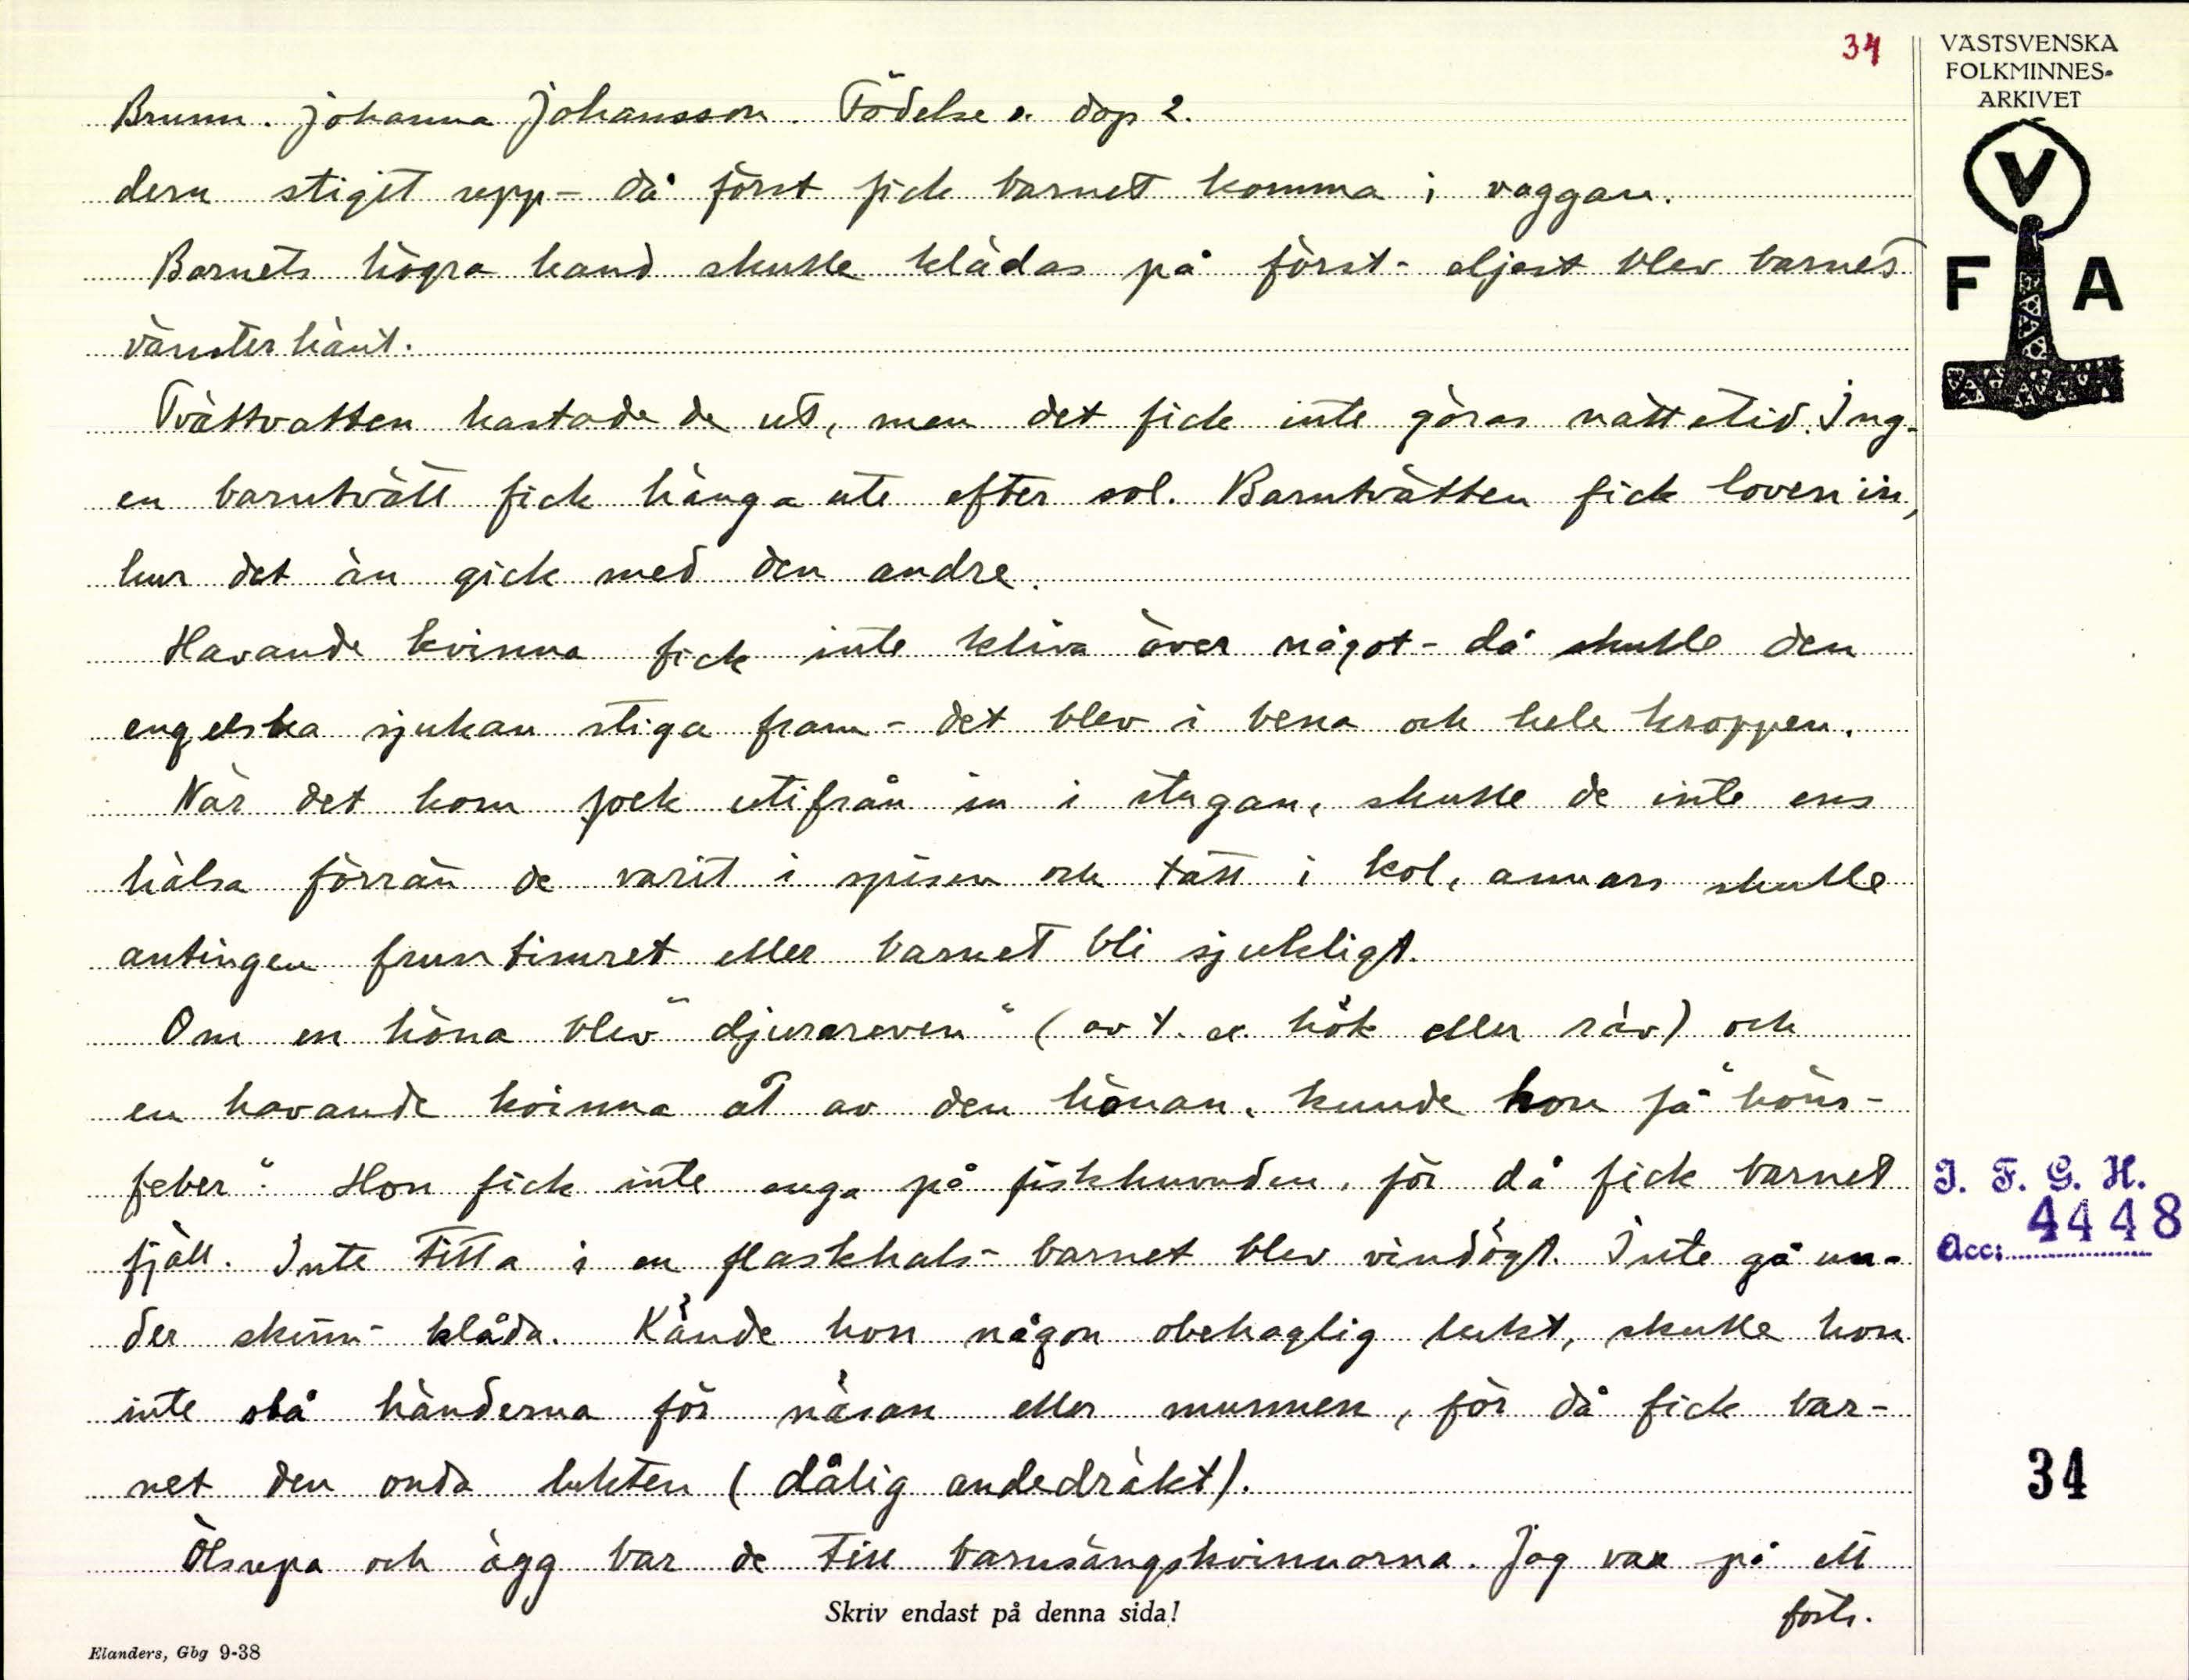 34
VÄSTSVENSKA
FOLKMINNES-
ARKIVET
V
F A
Brunn. Johanna Johansson. Födelse o. dop 2.
dern stiget upp - då först fick barnet komma i vaggan.
Barnets högra hand skulle klädas på först - eljest blev barnet
vänsterhänt.
Tvättvatten kastade de ut, men det fick inte göras nattetid. Ing-
en barntvätt fick hänga ute efter sol. Barntvätten fick loven in,
hur det än gick med den andre.
Havande kvinna fick inte kliva över något - då skulle den
engelska sjukan stiga fram - det blev i bena och hele kroppen.
När det kom folk utifrån in i stugan, skulle de inte ens
hälsa förrän de varit i spisen och tatt i kol, annars skulle
antingen fruntimret eller barnet bli sjukligt.
Om en höna blev "djurareven" (av t. ex. hök eller räv) och
en havande kvinna åt av den hönan, kunde hon få "höns-
feber". Hon fick inte suga på fiskhuvuden, för då fick barnet
fjäll. Inte titta i en flaskhals - barnet blev vindögt. Inte gå un-
der skinn-kläda. Kände hon någon obehaglig lukt, skulle hon
inte slå händerna för näsan eller munnen, för då fick bar-
net den onda lukten (dålig andedräkt).
Ölsupa och ägg bar de till barnsängskvinnorna. Jag var på ett
forts.
Skriv endast på denna sida!
Elanders, Gbg 9-38
I. F. G. H.
Acc: 4448
34